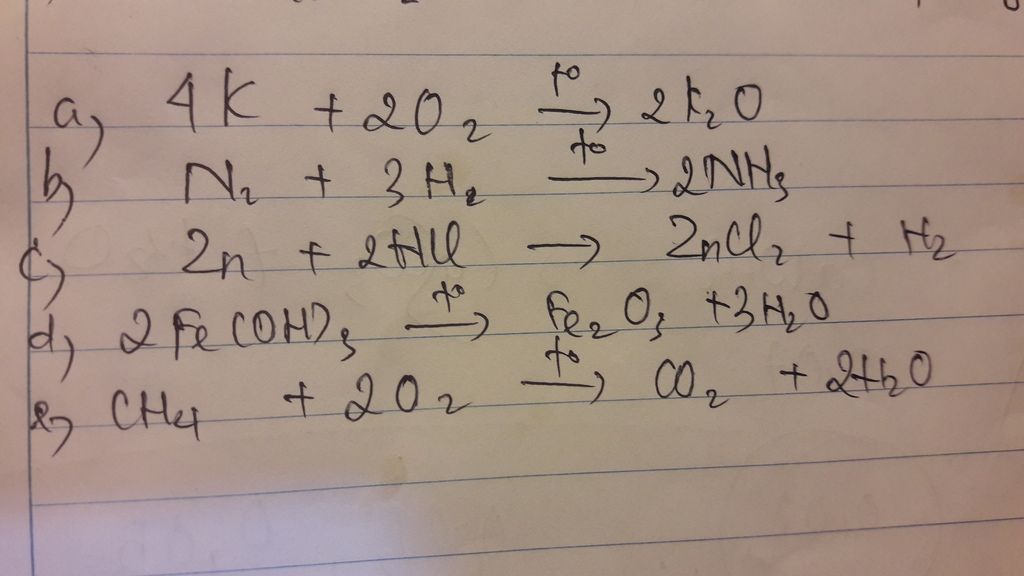 a) 4K + 2O₂ →(t°) 2K₂O
b) N₂ + 3H₂ →(t°) 2NH₃
c) Zn + 2HCl → ZnCl₂ + H₂
d) 2Fe(OH)₃ →(t°) Fe₂O₃ + 3H₂O
e) CH₄ + 2O₂ →(t°) CO₂ + 2H₂O